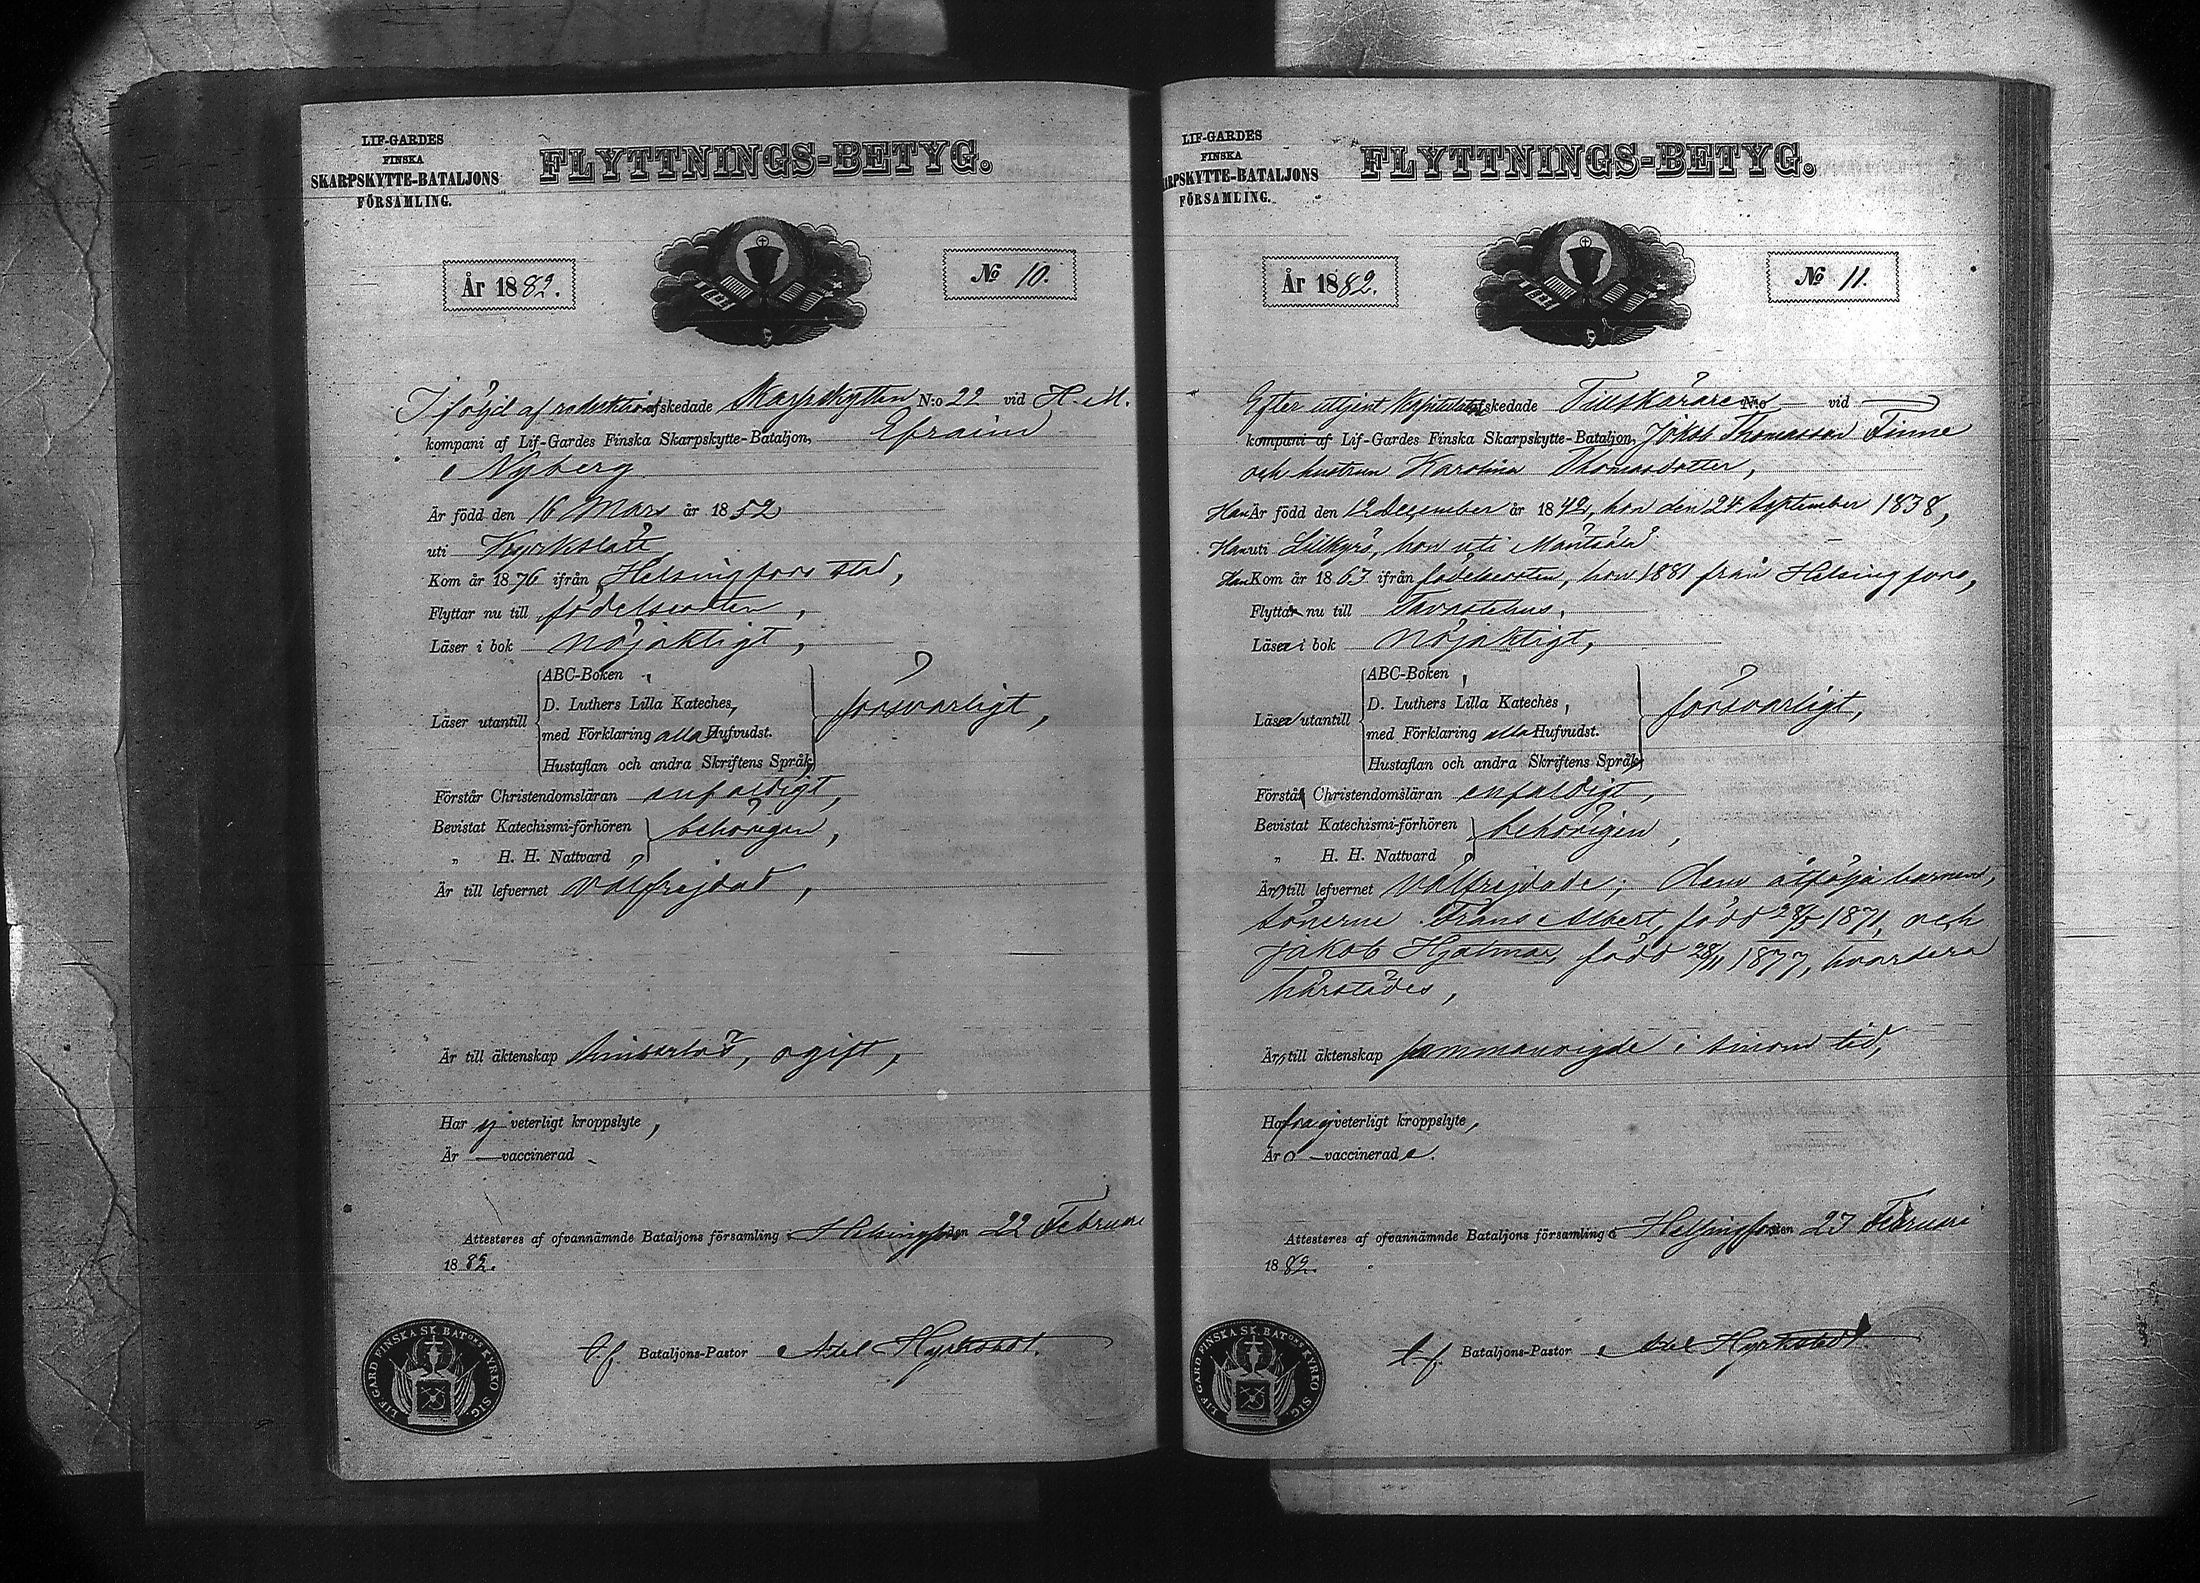 LIF-GARDES
FINSKA
SKARPSKYTTE-BATALJONS
FÖRSAMLING.
FLYTTNINGS-BETYG.
År 1882.
No 10.
I följd af reduktion afskedade Skarpskytten N:o 22 vid H. M.
kompani af Lif-Gardes Finska Skarpskytte-Bataljon, Efraim
Nyberg
Är född den 16 Mars år 1852
uti Kyrkslätt
Kom år 1876 ifrån Helsingfors stad,
Flyttar nu till födelseorten,
Läser i bok nöjaktigt,
Läser utantill
ABC-Boken,
D. Luthers Lilla Kateches,
med Förklaring alla Hufvudst.
Hustaflan och andra Skriftens Språk,
försvarligt,
Förstår Christendomsläran enfaldigt,
Bevistat Katechismi-förhören
„ H. H. Nattvard
behörigen,
Är till lefvernet välfrejdad,
Är till äktenskap hinderlös, ogift,
Har ej veterligt kroppslyte,
Är — vaccinerad
Attesteres af ofvannämnde Bataljons församling Helsingfors den 22 Februari
1882.
t.f. Bataljons-Pastor Axel Hyrkstedt.
LIF GARD FINSKA SK. BATONS KYRKO SIG
LIF-GARDES
FINSKA
ARPSKYTTE-BATALJONS
FÖRSAMLING.
FLYTTNINGS-BETYG.
År 1882.
No 11.
Efter utgien kapitulation afskedade Tillskäraren N:o — vid —
kompani af Lif-Gardes Finska Skarpskytte-Bataljon, Jakob Thomasson Finne
och hustrun Karolina Thomasdotter,
Han Är född den 12 December år 1842, hon den 24 September 1838,
Han uti Lillkyrö, hon uti Mäntsälä
Han Kom år 1867 ifrån födelseorten, hon 1881 från Helsingfors,
Flytta nu till Tavastehus,
Läse i bok nöjaktigt,
Läse utantill
ABC-Boken,
D. Luthers Lilla Kateches,
med Förklaring alla Hufvudst.
Hustaflan och andra Skriftens Språk,
försvarligt,
Förstå Christendomsläran enfaldigt,
Bevistat Katechismi-förhören
„ H. H. Nattvard
behörigen,
Äro till lefvernet välfrejdade; dem åtfölja barnen,
sönerne Frans Albert, född 28/5 1871, och
Jakob Hjalmar, född 28/11 1877, hvardera
härstädes,
Äro till äktenskap sammanvigde i sinom tid,
Hafva ej veterligt kroppslyte,
Äro — vaccinerade.
Attesteres af ofvannämnde Bataljons församling Helsingfors den 27 Februari
1882.
t.f. Bataljons-Pastor Axel Hyrkstedt.
LIF GARD FINSKA SK. BATONS KYRKO SIG